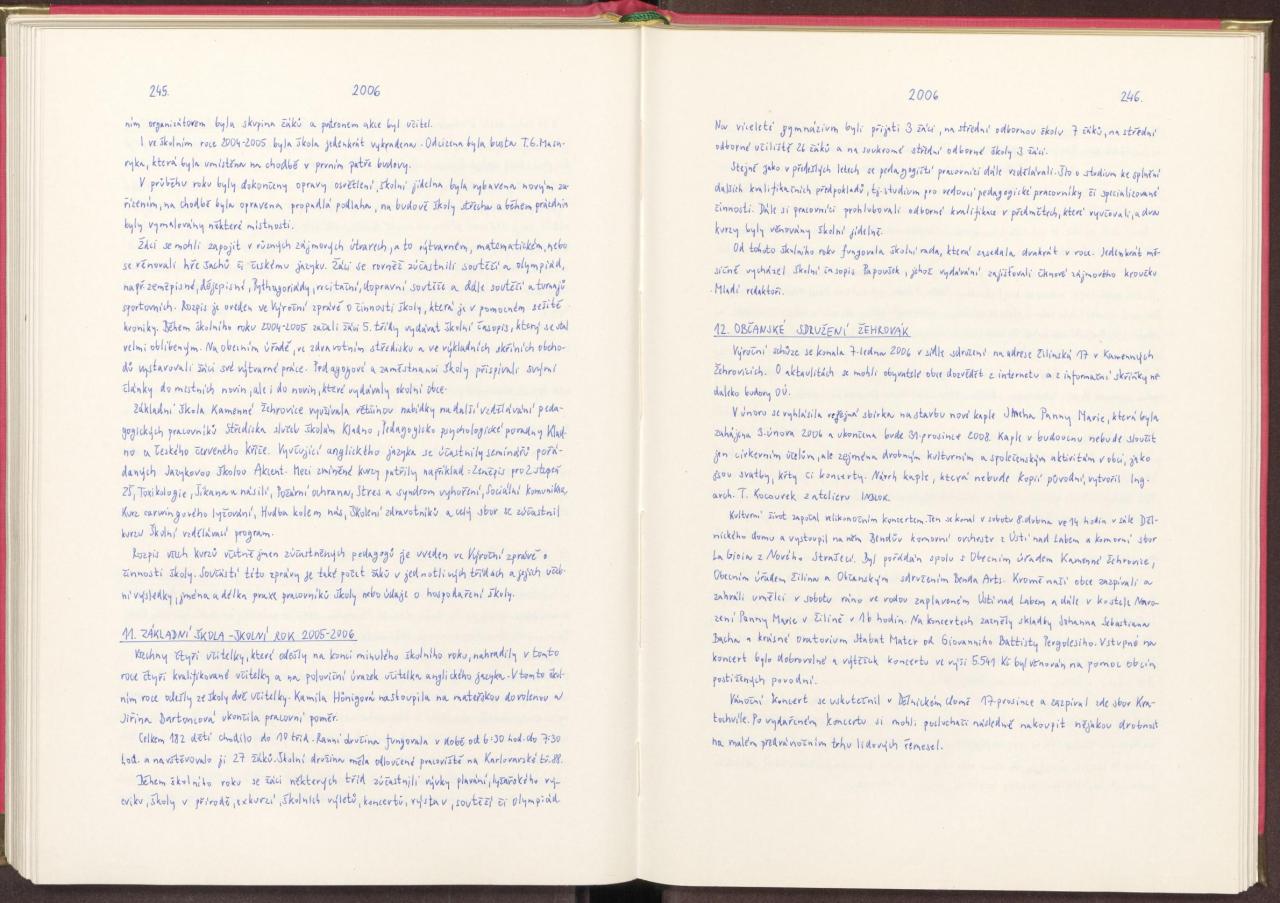 245.
2006
ním organizátorem byla skupina žáků a patronem akce byl učitel.
I ve školním roce 2004-2005 byla škola jedenkrát vykradena. Odcizena byla busta T.G. Masa-
ryka, která byla umístěna na chodbě v prvním patře budovy.
V průběhu roku byly dokončeny opravy osvětlení, školní jídelna byla vybavena novým za-
řízením, na chodbě byla opravena propadlá podlaha, na budově školy střecha a během prázdnin
byly vymalovány některé místnosti.
Žáci se mohli zapojit v různých zájmových útvarech, a to výtvarném, matematickém, nebo
se věnovali hře šachů či českému jazyku. Žáci se rovněž zúčastnili soutěží a olympiád,
např. zeměpisné, dějepisné, Pythagoriády, recitační, dopravní soutěže a dále soutěží a turnajů
sportovních. Rozpis je uveden ve Výroční zprávě o činnosti školy, která je v pomocném sešitě
kroniky. Během školního roku 2004-2005 začali žáci 5. třídy vydávat školní časopis, který se stal
velmi oblíbeným. Na obecním úřadě, ve zdravotním středisku a ve výkladních skříních obcho-
dů vystavovali žáci své výtvarné práce. Pedagogové a zaměstnanci školy přispívali svými
články do místních novin, ale i do novin, které vydávaly okolní obce.
Základní škola Kamenné Žehrovice využívala většinou nabídky na další vzdělávání peda-
gogických pracovníků Střediska služeb školám Kladno, Pedagogicko psychologické poradny Klad-
no a Českého červeného kříže. Vyučující anglického jazyka se účastnily seminářů pořá-
daných Jazykovou školou Akcent. Mezi zmíněné kurzy patřily například - Zeměpis pro 2. stupeň
ZŠ, Toxikologie, Šikana a násilí, Požární ochrana, Stres a syndrom vyhoření, Sociální komunikace,
Kurz carwingového lyžování, Hudba kolem nás, Školení zdravotníků a celý sbor se zúčastnil
kurzu Školní vzdělávací program.
Rozpis všech kurzů včetně jmen zúčastněných pedagogů je uveden ve Výroční zprávě o
činnosti školy. Součástí této zprávy je také počet žáků v jednotlivých třídách a jejich učeb-
ní výsledky, jména a délka praxe pracovníků školy nebo údaje o hospodaření školy.
11. ZÁKLADNÍ ŠKOLA - ŠKOLNÍ ROK 2005-2006
Všechny čtyři učitelky, které odešly na konci minulého školního roku, nahradily v tomto
roce čtyři kvalifikované učitelky a na poloviční úvazek učitelka anglického jazyka. V tomto škol-
ním roce odešly ze školy dvě učitelky. Kamila Hönigová nastoupila na mateřskou dovolenou a
Jiřina Bartoncová ukončila pracovní poměr.
Celkem 182 dětí chodilo do 10 tříd. Ranní družina fungovala v době od 6:30 hod. do 7:30
hod. a navštěvovalo ji 27 žáků. Školní družina měla odloučené pracoviště na Karlovarské tř. 88.
Během školního roku se žáci některých tříd zúčastnili výuky plavání, lyžařského vý-
cviku, školy v přírodě, exkurzí, školních výletů, koncertů, výstav, soutěží či olympiád.
2006
246.
Na víceleté gymnázium byli přijati 3 žáci, na střední odbornou školu 7 žáků, na střední
odborné učiliště 26 žáků a na soukromé střední odborné školy 3 žáci.
Stejně jako v předešlých letech se pedagogičtí pracovníci dále vzdělávali. Šlo o studium ke splnění
dalších kvalifikačních předpokladů, tj. studium pro vedoucí pedagogické pracovníky či specializované
činnosti. Dále si pracovníci prohlubovali odborné kvalifikace v předmětech, které vyučovali, a dva
kurzy byly věnovány školní jídelně.
Od tohoto školního roku fungovala školní rada, která zasedala dvakrát v roce. Jedenkrát mě-
síčně vycházel školní časopis Papoušek, jehož vydávání zajišťovali členové zájmového kroužku
Mladí redaktoři.
12. OBČANSKÉ SDRUŽENÍ ŽEHROVÁK
Výroční schůze se konala 7. ledna 2006 v sídle sdružení na adrese Žilinská 17 v Kamenných
Žehrovicích. O aktualitách se mohli obyvatelé obce dozvědět z internetu a z informační skříňky ne-
daleko budovy OÚ.
V únoru se vyhlásila veřejná sbírka na stavbu nové kaple Srdce Panny Marie, která byla
zahájena 3. února 2006 a ukončena bude 31. prosince 2008. Kaple v budoucnu nebude sloužit
jen církevním účelům, ale zejména drobným kulturním a společenským aktivitám v obci, jako
jsou svatby, křty či koncerty. Návrh kaple, která nebude kopií původní, vytvořil Ing.
arch. T. Kocourek z atelieru
Kulturní život započal velikonočním koncertem. Ten se konal v sobotu 8. dubna ve 14 hodin v sále Děl-
nického domu a vystoupil na něm Bendův komorní orchestr z Ústí nad Labem a komorní sbor
La Gioia z Nového Strašecí. Byl pořádán spolu s Obecním úřadem Kamenné Žehrovice,
Obecním úřadem Žilina a Občanským sdružením Benda Arts. Kromě naší obce zazpívali a
zahráli umělci v sobotu ráno ve vodou zaplaveném Ústí nad Labem a dále v kostele Naro-
zení Panny Marie v Žilině v 16 hodin. Na koncertech zazněly skladby Johanna Sebastiana
Bacha a krásné oratorium Stabat Mater od Giovanniho Battisty Pergolesiho. Vstupné na
koncert bylo dobrovolné a výtěžek koncertu ve výši 5.549 Kč byl věnován na pomoc obcím
postižených povodní.
Vánoční koncert se uskutečnil v Dělnickém domě 17. prosince a zazpíval zde sbor Kra-
tochvíle. Po vydařeném koncertu si mohli posluchači následně nakoupit nějakou drobnost
na malém předvánočním trhu lidových řemesel.